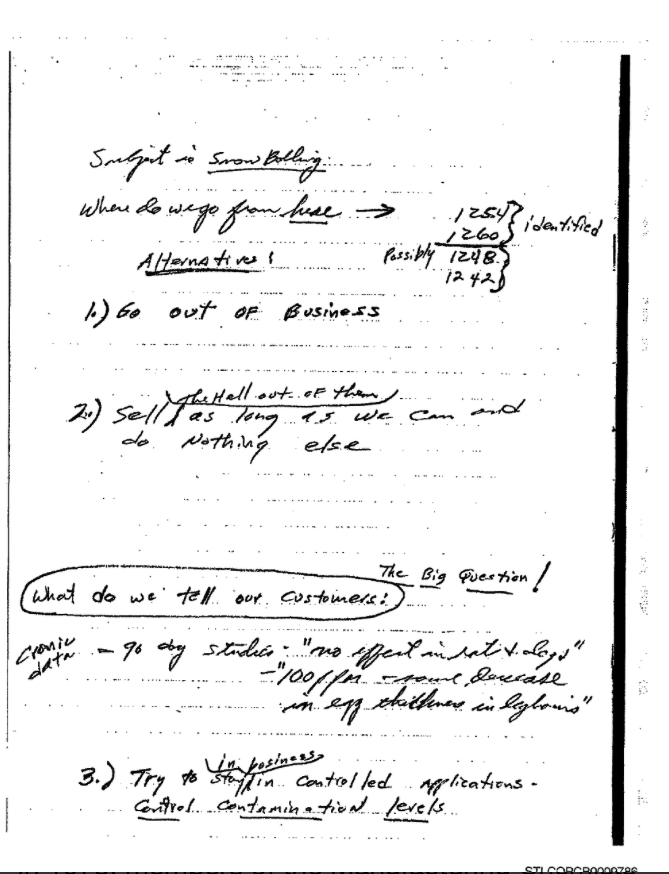 Subject is Snow Balling.
Where do we go from here →
1254 } identified
1260
Possibly 1248 }
1242
Alternatives:
1.) Go out of Business
2.) Sell the Hell out of them as long as we can and
do Nothing else
The Big Question!
What do we tell our customers:
cronic data - 90 day studies - "no effect in rat & dogs"
- "100 ppm - some decrease
in egg thickness in leghorns"
3.) Try to stay in business in controlled applications -
Control Contamination levels
STLCOPCB0009786